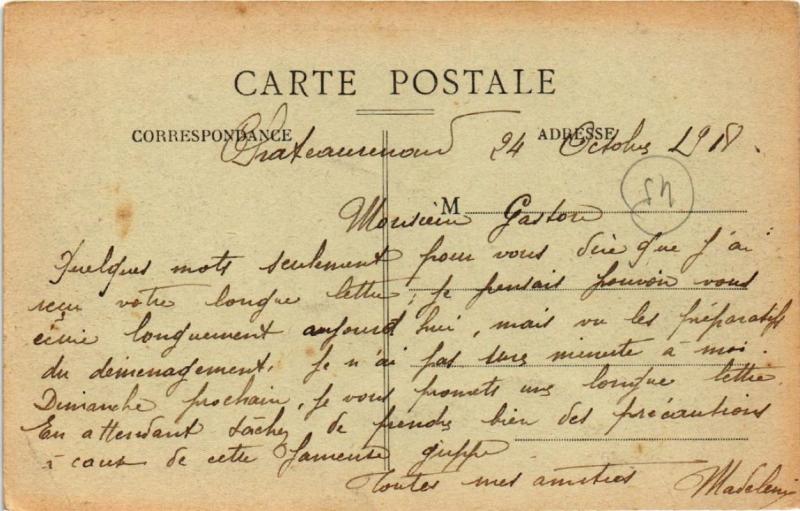 CARTE POSTALE
CORRESPONDANCE
ADRESSE
Chateaurenard 24 Octobre 1918.
M
54
Monsieur Gaston
Quelques mots seulement pour vous dire que j'ai
reçu votre longue lettre; je pensais pouvoir vous
écrire longuement aujourd'hui, mais vu les préparatifs
du déménagement, je n'ai pas une minute à moi.
Dimanche prochain, je vous promets une longue lettre.
En attendant tâchez de prendre bien des précautions
à cause de cette fameuse grippe.
Toutes mes amitiés Madeleine